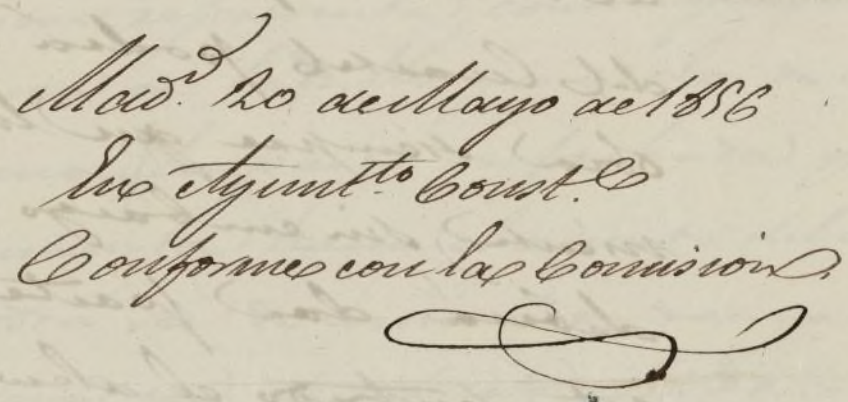 Mad.d 20 de Mayo de 1856
En Ayunt.to Const.l
Conforme con la Comision